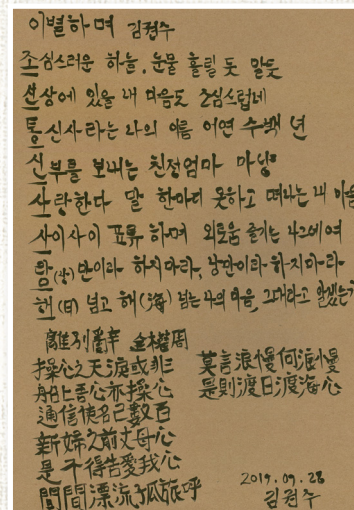 이별하며 김권주
조심스러운 하늘, 눈물 흘릴 듯 말듯
선상에 있을 내 마음도 조심스럽네
통신사라는 나의 이름 어연 수백 년
신부를 보내는 친정엄마 마냥
사랑한다 말 한마디 못하고 떠나는 내 마음
사이사이 표류하며 외로움 즐기는 나그네여
만이라 하지마라, 낭만이라 하지마라
해(日) 넘고 해(海) 넘는 나의 마음, 그대라고
離別 金權周
操心之天淚或非
船上吾心亦操心
通信使名已數百
新婦之前丈母心
是不得告愛我心
間間漂流孤旅呼
莫言浪慢何浪慢
是則渡日渡海心
2019.09.28
김권주